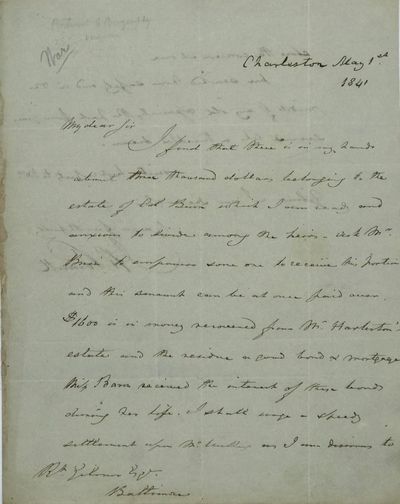 War
Charleston May 1st
1841
My dear Sir
I find that there is in my hands
about three thousand dollars belonging to the
estate of Col which I am ready and
anxious to divide among the heirs - ask Mr.
to empower some one to receive his portion
and this amount can be at once paid over.
$1600 is in money recovered from Mr Harleston's
estate and the residue a good bond & mortgage
Miss received the interest of these bonds
during her life. I shall urge a speedy
settlement upon Mr as I am desirous to
Rt Gilmor Esqr.
Baltimore